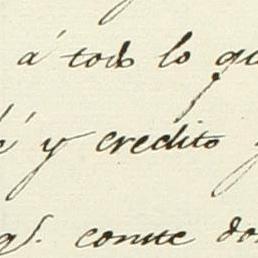 á todo lo qu
é y credito
qs. conste do